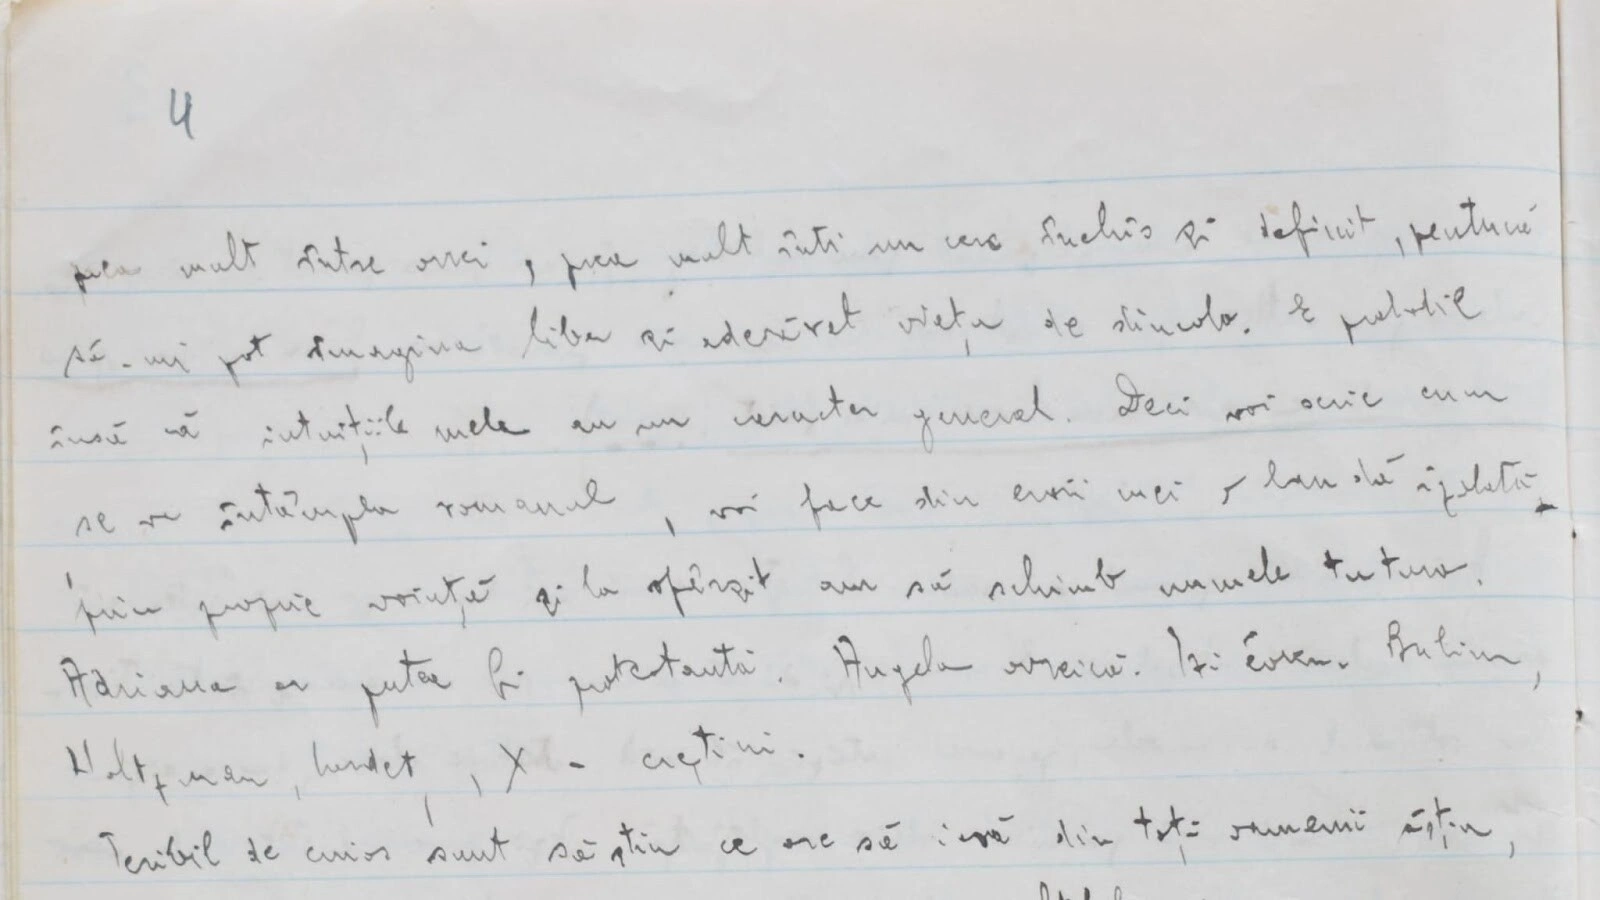 4
prea mult între ovrei, prea mult într un cerc închis și definit, pentrucă
să-mi pot imagina liber și adevărat viața de dincolo. E probabil
însă că intuițiile mele au un caracter general. Deci voi scrie cum
se va întâmpla romanul, voi face din eroii mei o bandă izolată
prin proprie voință și la sfârșit am să schimb numele tuturor.
Adriana ar putea fi protestantă. Angela ovreică. Izi évreu. Buhim,
Holtzman, , X - creștini.
Teribil de curios sunt să știu ce are să iasă din toți oamenii ăștia,